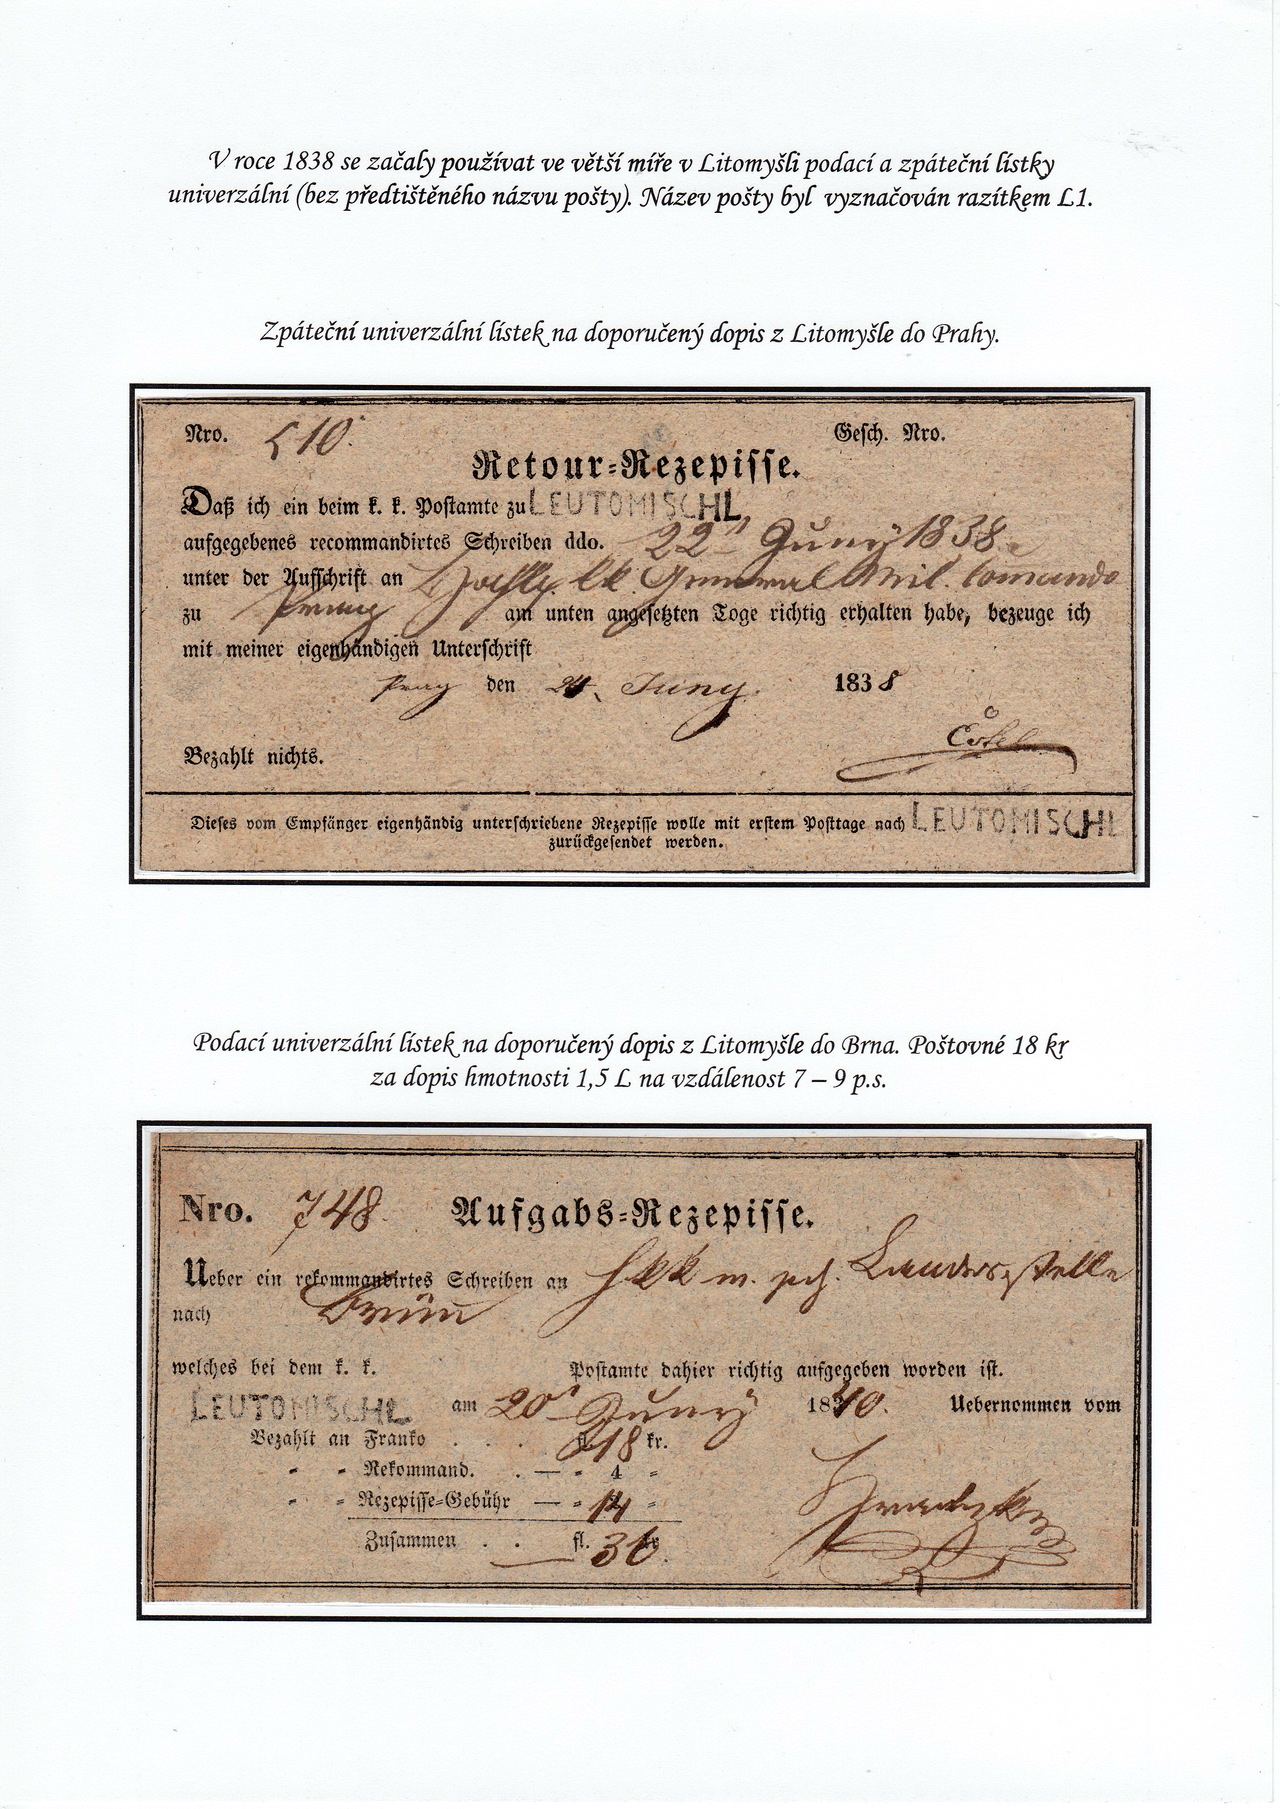 V roce 1838 se začaly používat ve větší míře v Litomyšli podací a zpáteční lístky
univerzální (bez předtištěného názvu pošty). Název pošty byl vyznačován razítkem L1.
Zpáteční univerzální lístek na doporučený dopis z Litomyšle do Prahy.
Nro. 510. Gesch. Nro.
Retour-Rezepisse.
Daß ich ein beim k. k. Postamte zu LEUTOMISCHL
aufgegebenes recommandirtes Schreiben ddo. 22 Juny 1838
unter der Aufschrift an Löbl. k.k. General Mil. Comando
zu Prag am unten angesetzten Toge richtig erhalten habe, bezeuge ich
mit meiner eigenhändigen Unterschrift
Prag den 24. Juny. 1838
Bezahlt nichts.
Dieses vom Empfänger eigenhändig unterschriebene Rezepisse wolle mit erstem Posttage nach LEUTOMISCHL
zurückgesendet werden.
Podací univerzální lístek na doporučený dopis z Litomyšle do Brna. Poštovné 18 kr
za dopis hmotnosti 1,5 L na vzdálenost 7 – 9 p.s.
Nro. 748. Aufgabs-Rezepisse.
Ueber ein rekommandirtes Schreiben an kk m. sch. Landesstelle
nach Brünn
welches bei dem k. k. Postamte dahier richtig aufgegeben worden ist.
LEUTOMISCHL am 20 Juny 1840. Uebernommen vom
Bezahlt an Franko . . . fl. 18 kr.
" " Rekommand. . — " 4 "
" " Rezepisse-Gebühr — " 14 "
Zusammen . . fl. 36 kr.